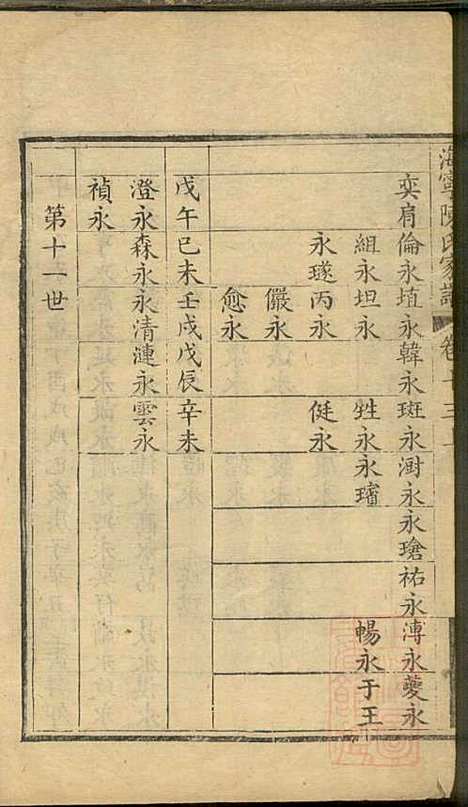 海寧陳氏家譜 卷十三上
奕肩倫永埴永韓永斑永澍永永瑲祐永漙永夔永
組永坦永 甡永永璿 暢永于王
永璲丙永 侹永
儼永
愈永
戊午巳未壬戌戊辰辛未
澄永森永永清漣永雲永
禎永
第十一世